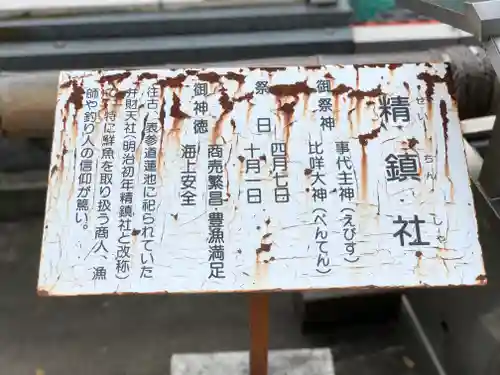 精鎮社
せいちんしゃ
御祭神 事代主神(えびす)
比咩大神(べんてん)
祭日 四月七日
十月一日
御神徳 商売繁昌・豊漁満足
海上安全
往古、表参道蓮池に祀られていた
弁財天社(明治初年精鎮社と改称)
特に鮮魚を取り扱う商人、漁
師や釣り人の信仰が篤い。